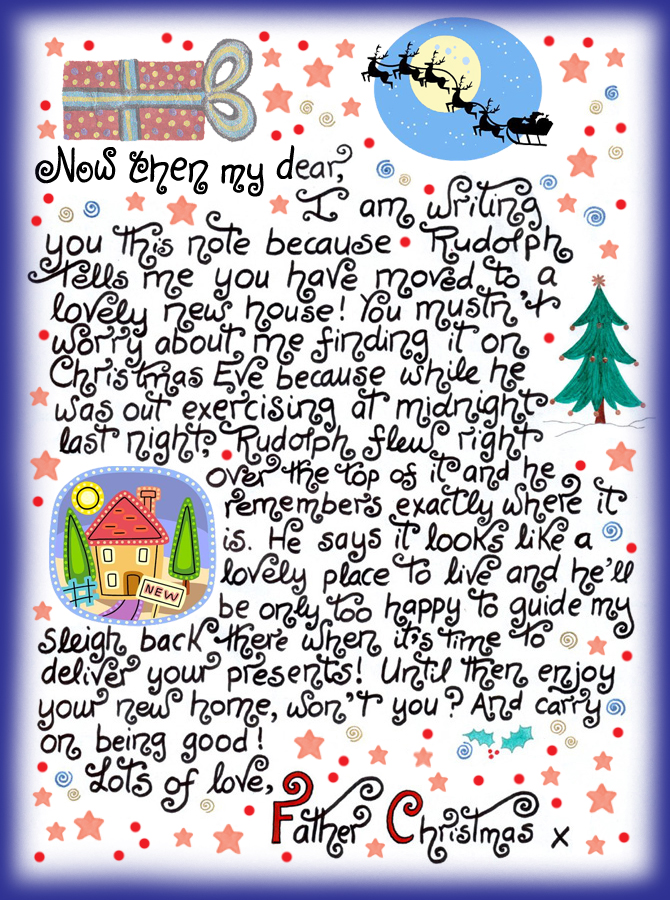 Now then my dear,
I am writing
you this note because Rudolph
tells me you have moved to a
lovely new house! You mustn't
worry about me finding it on
Christmas Eve because while he
was out exercising at midnight
last night, Rudolph flew right
over the top of it and he
remembers exactly where it
is. He says it looks like a
lovely place to live and he'll
NEW
be only too happy to guide my
sleigh back there when it's time to
deliver your presents! Until then enjoy
your new home, won't you? And carry
on being good!
Lots of love,
Father Christmas x